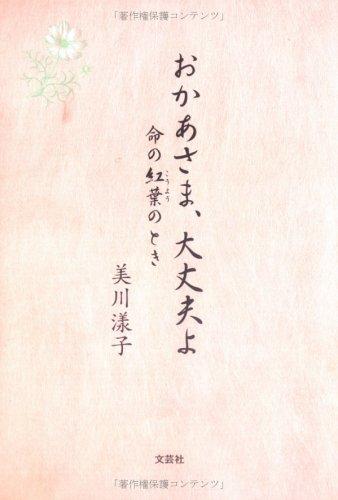 「著作権保護コンテンツ」
おかあさま、大丈夫よ
命の紅葉のとき
こうよう
美川漾子
文芸社
「著作権保護コンテンツ」